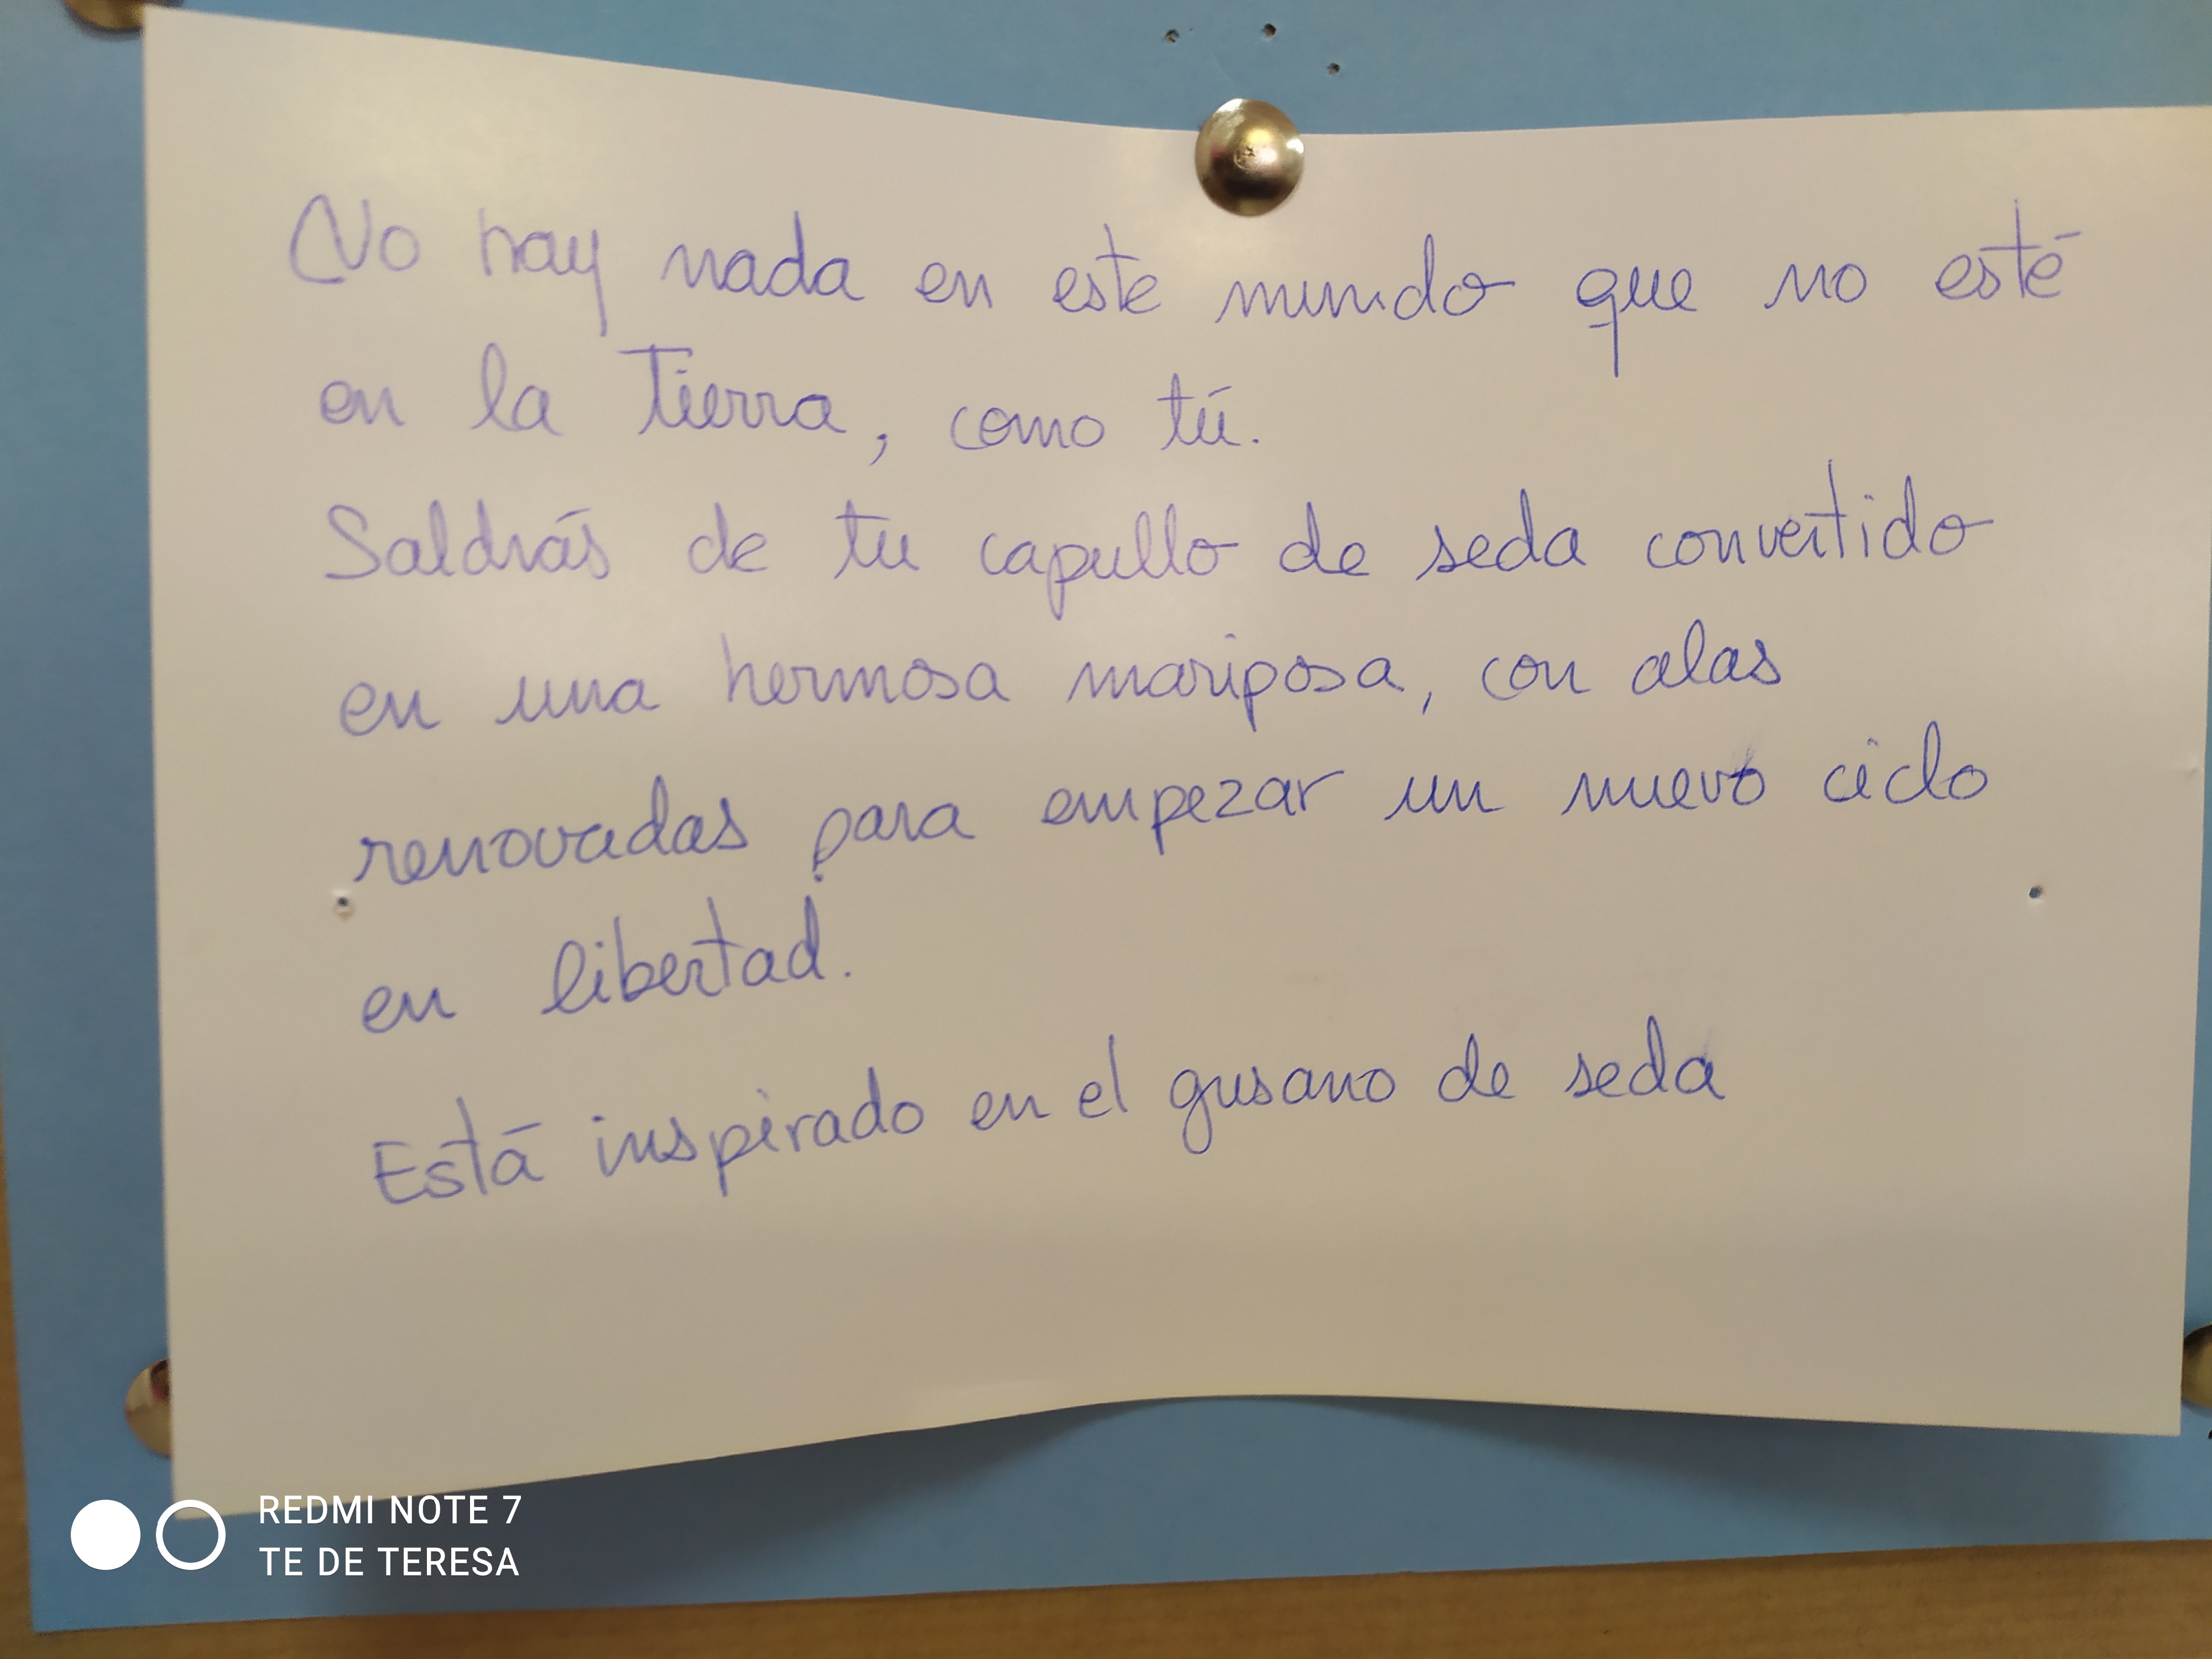 No hay nada en este mundo que no esté
en la Tierra, como tú.
Saldrás de tu capullo de seda convertido
en una hermosa mariposa, con alas
renovadas para empezar un nuevo ciclo
en libertad.
Está inspirado en el gusano de seda
REDMI NOTE 7
TE DE TERESA